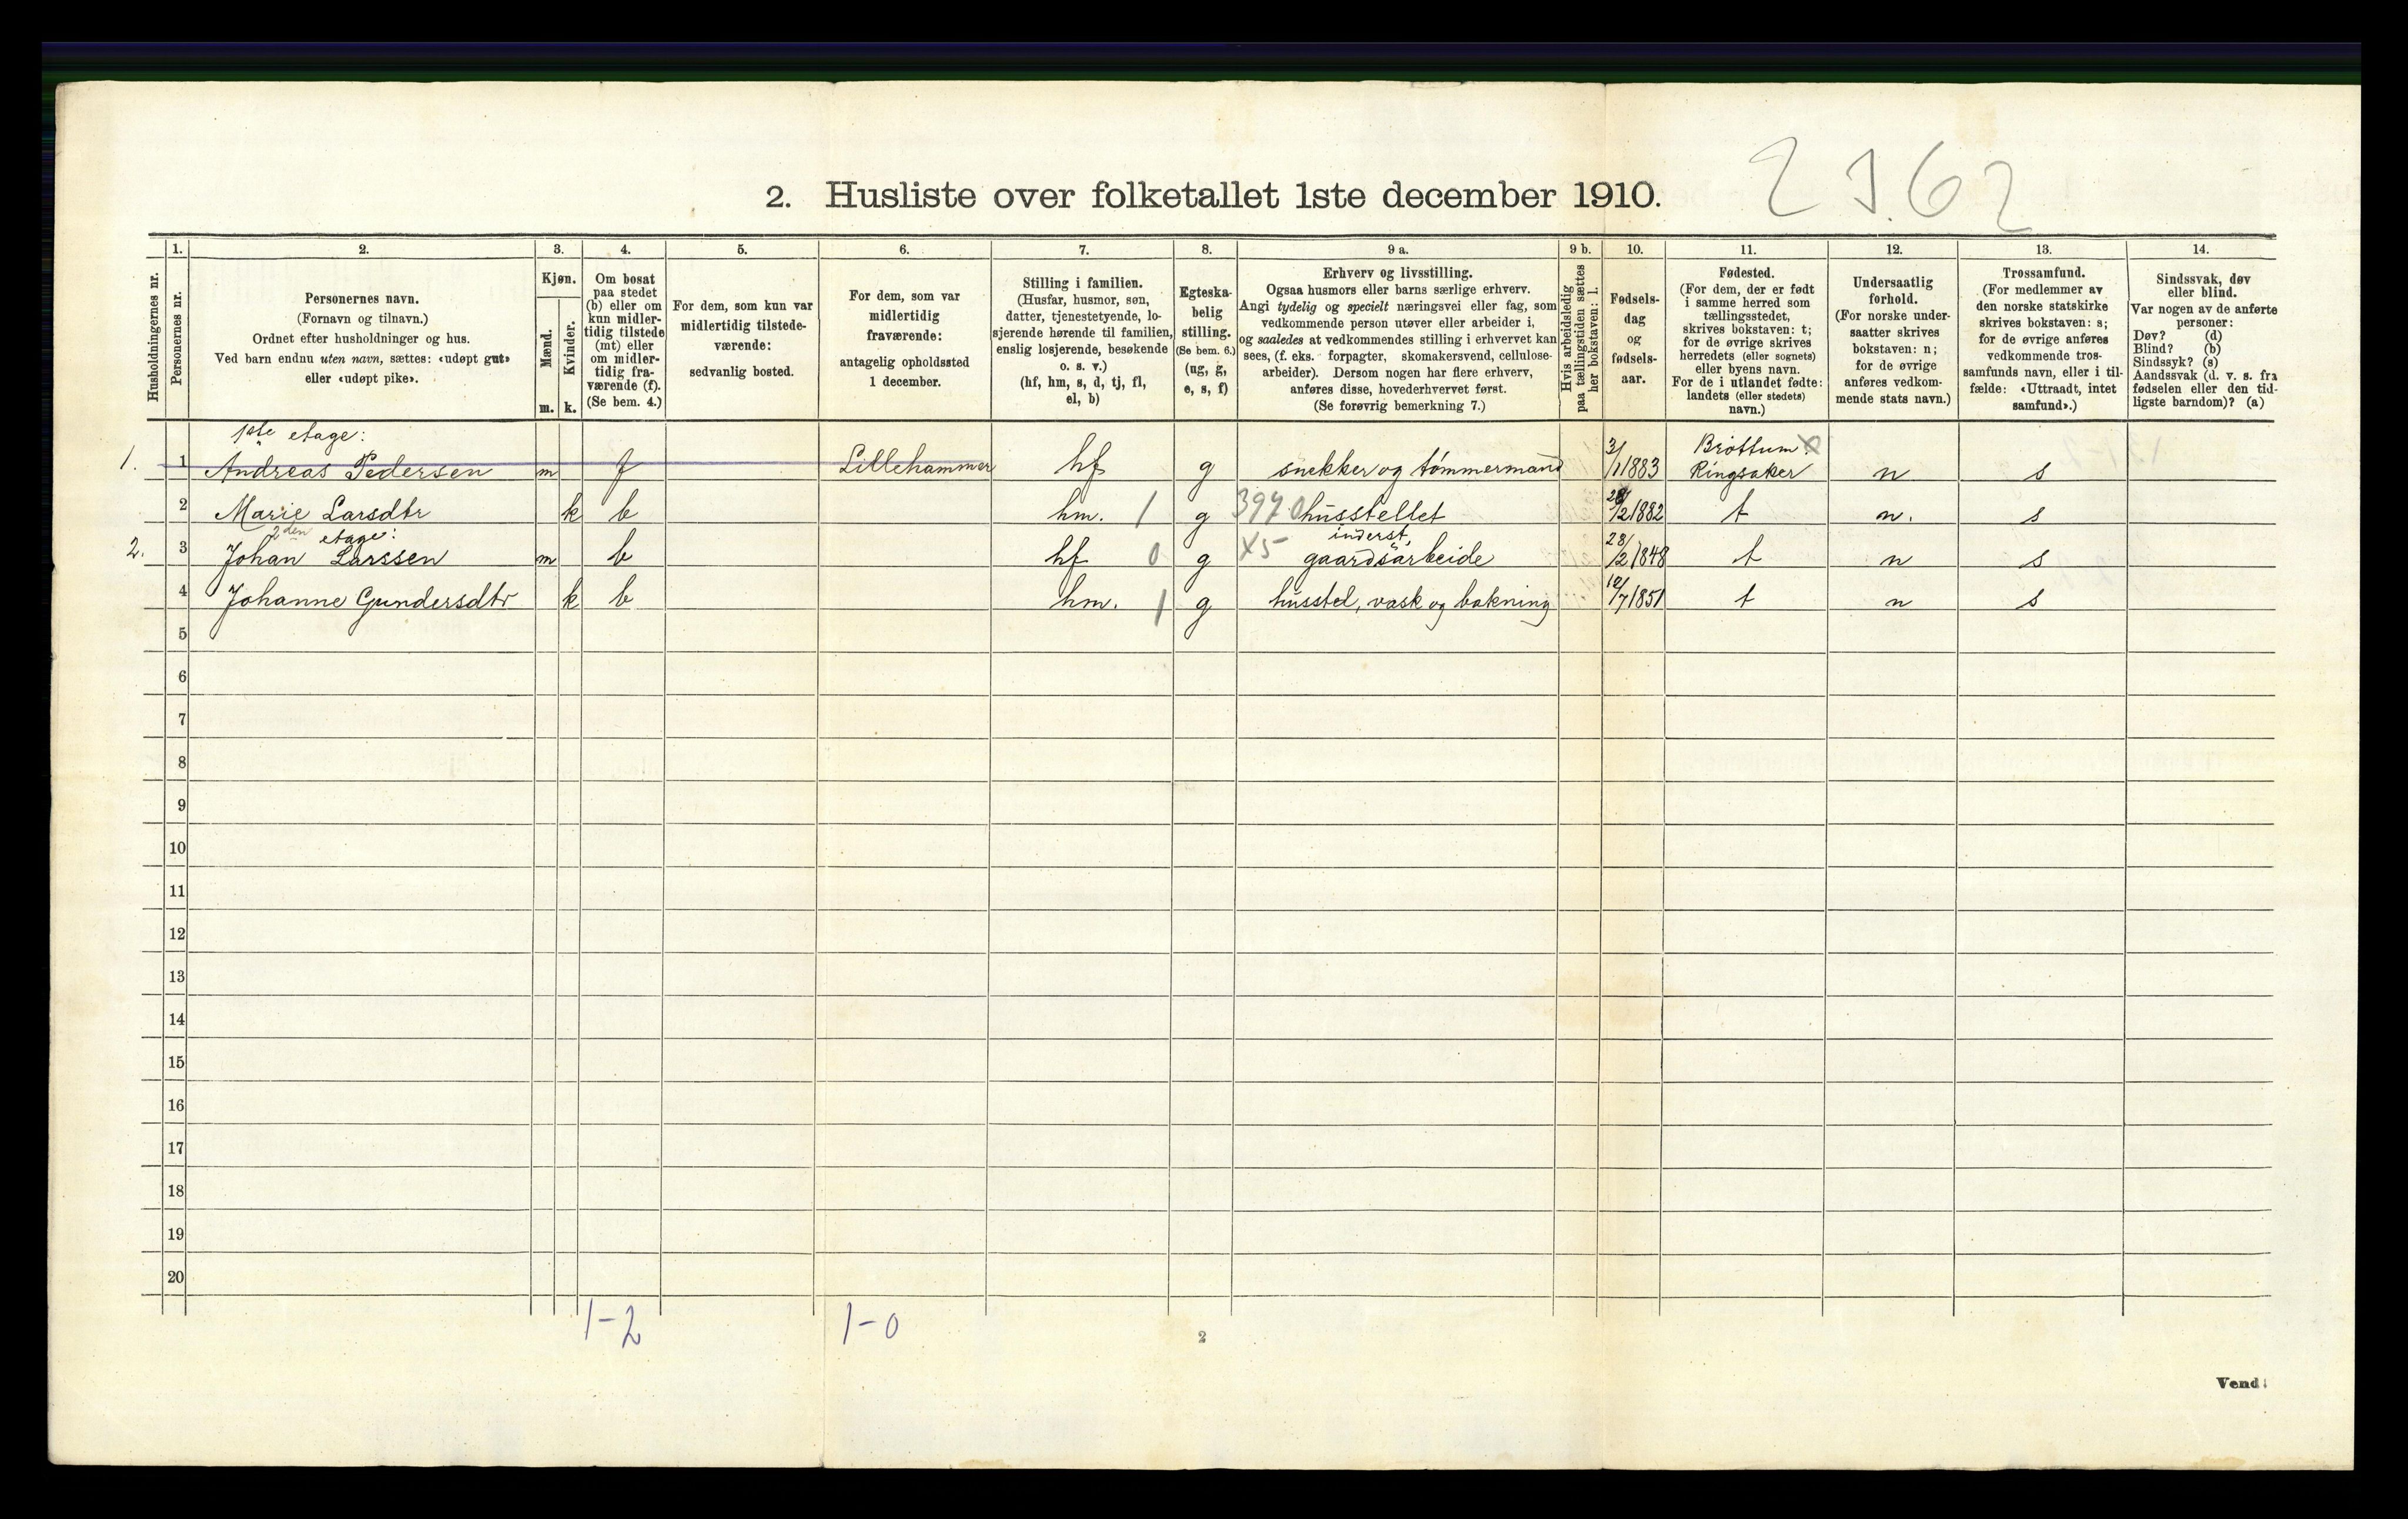 2 3.62
2. Husliste over folketallet 1ste december 1910.
Husholdningernes nr.
1. Personernes nr.
2. Personernes navn. (Fornavn og tilnavn.) Ordnet efter husholdninger og hus. Ved barn endnu uten navn, sættes: «udøpt gut» eller «udøpt pike».
3. Kjøn. Mænd. m. Kvinder. k.
4. Om bosat paa stedet (b) eller om kun midlertidig tilstede (mt) eller om midlertidig fraværende (f). (Se bem. 4.)
5. For dem, som kun var midlertidig tilstedeværende: sedvanlig bosted.
6. For dem, som var midlertidig fraværende: antagelig opholdssted 1 december.
7. Stilling i familien. (Husfar, husmor, søn, datter, tjenestetyende, losjerende hørende til familien, enslig losjerende, besøkende o. s. v.) (hf, hm, s, d, tj, fl, el, b)
8. Egteskabelig stilling. (Se bem. 6.) (ug, g, e, s, f)
9 a. Erhverv og livsstilling. Ogsaa husmors eller barns særlige erhverv. Angi tydelig og specielt næringsvei eller fag, som vedkommende person utøver eller arbeider i, og saaledes at vedkommendes stilling i erhvervet kan sees, (f. eks. forpagter, skomakersvend, cellulosearbeider). Dersom nogen har flere erhverv, anføres disse, hovederhvervet først. (Se forøvrig bemerkning 7.)
9 b. Hvis arbeidsledig paa tællingstiden sættes her bokstaven: l.
10. Fødselsdag og fødselsaar.
11. Fødested. (For dem, der er født i samme herred som tællingsstedet, skrives bokstaven: t; for de øvrige skrives herredets (eller sognets) eller byens navn. For de i utlandet fødte: landets (eller stedets) navn.)
12. Undersaatlig forhold. (For norske undersaatter skrives bokstaven: n; for de øvrige anføres vedkommende stats navn.)
13. Trossamfund. (For medlemmer av den norske statskirke skrives bokstaven: s; for de øvrige anføres vedkommende trossamfunds navn, eller i tilfælde: «Uttraadt, intet samfund».)
14. Sindssvak, døv eller blind. Var nogen av de anførte personer: Døv? (d) Blind? (b) Sindssyk? (s) Aandssvak (d. v. s. fra fødselen eller den tidligste barndom)? (a)
1ste etage:
1. 1 Andreas Pedersen m f Lillehammer hf g snekker og tømmermand 3/1 1883 Brøttum Ringsaker n s
2 Marie Larsdtr k b hm. 1 g 3970 husstellet /2 1882 t n. s
2den etage:
2. 3 Johan Larssen m b hf 0 g X5 inderst, gaardsarbeide 28/2 1848 t n s
4 Johanne Gundersdtr k b hm. 1 g husstel, vask og bakning 10/7 1851 t n s
5
6
7
8
9
10
11
12
13
14
15
16
17
18
19
20
1-2 1-0
2
Vend!